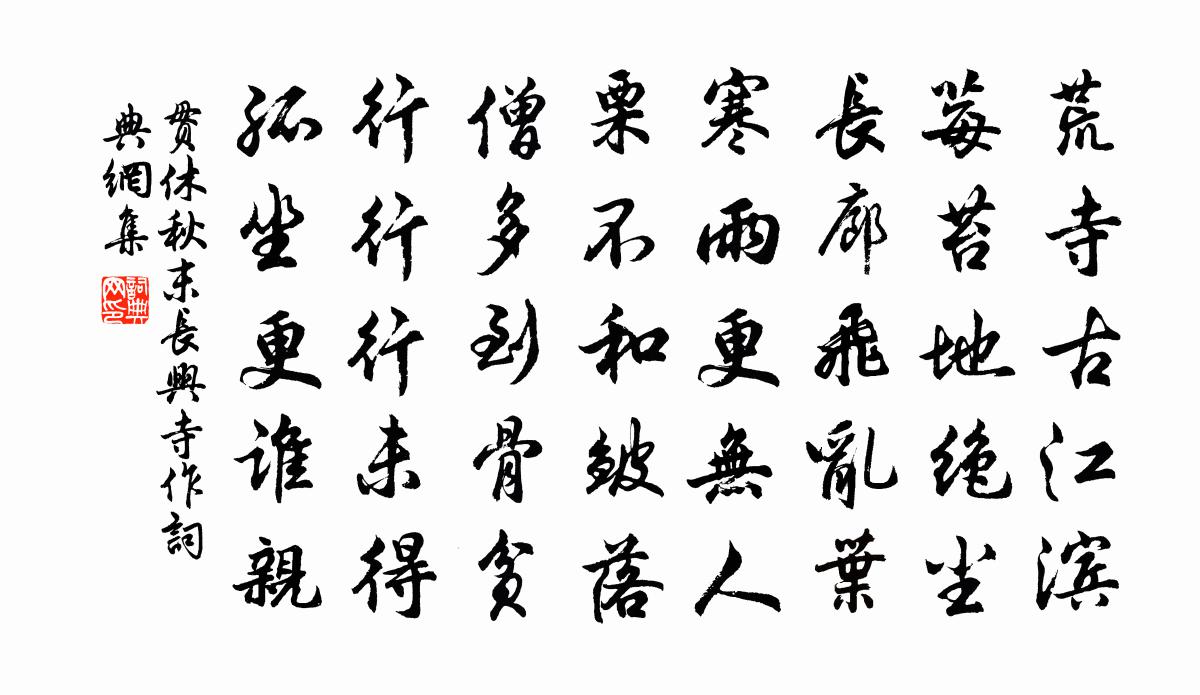 荒寺古江滨
莓苔地絶尘
長廊飛亂葉
寒雨更無人
栗不和皺落
僧多到骨貧
行行行未得
孤坐更誰親
貫休秋末長興寺作詞
典網集
詞典
网印